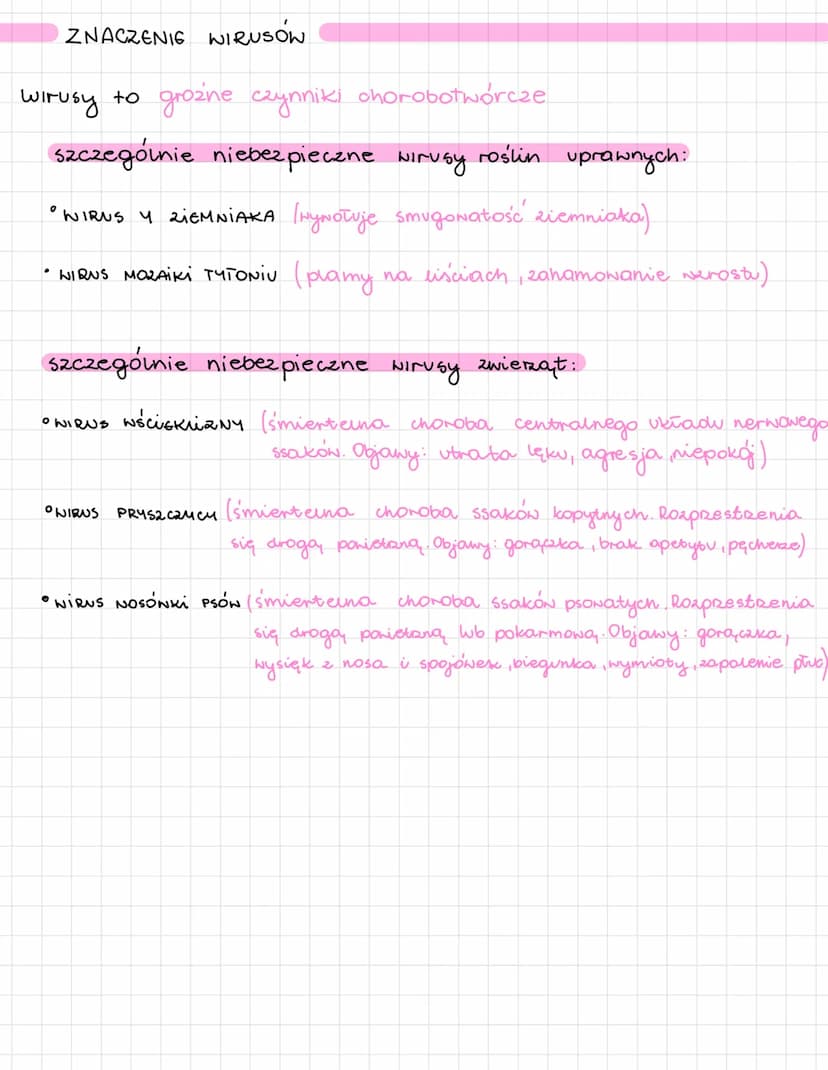 ZNACZENIE WIRUSÓW
wirusy to groźne czynniki chorobotwórcze
szczególnie niebezpieczne wirusy roślin uprawnych:
• WIRUS Y ZIEMNIAKA (wywołuje smugowatość ziemniaka)
• WIRUS MOZAIKI TYTONIU (plamy na liściach, zahamowanie wzrostu)
szczególnie niebezpieczne wirusy zwierząt:
• WIRUS WŚCIEKLIZNY (śmiertelna choroba centralnego układu nerwowego
ssaków. Objawy: utrata lęku, agresja, niepokój)
• WIRUS PRYSZCZYCY (śmiertelna choroba ssaków kopytnych. Rozprzestrzenia
się drogą powietrzną. Objawy: gorączka, brak apetytu, pęcherze)
• WIRUS NOSÓWKI PSÓW (śmiertelna choroba ssaków psowatych. Rozprzestrzenia
się drogą powietrzną lub pokarmową. Objawy: gorączka,
wysięk z nosa i spojówek, biegunka, wymioty, zapalenie płuc)